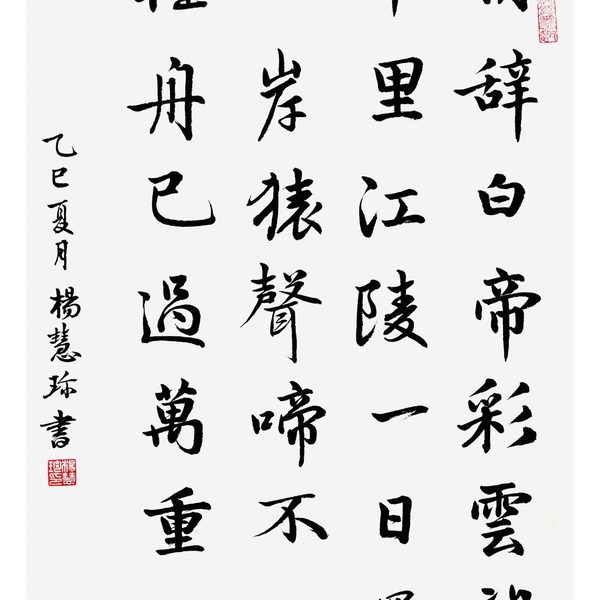 辭白帝彩雲
里江陵一日
岸猿聲啼不
舟已過萬重
乙巳夏月楊慧珎書